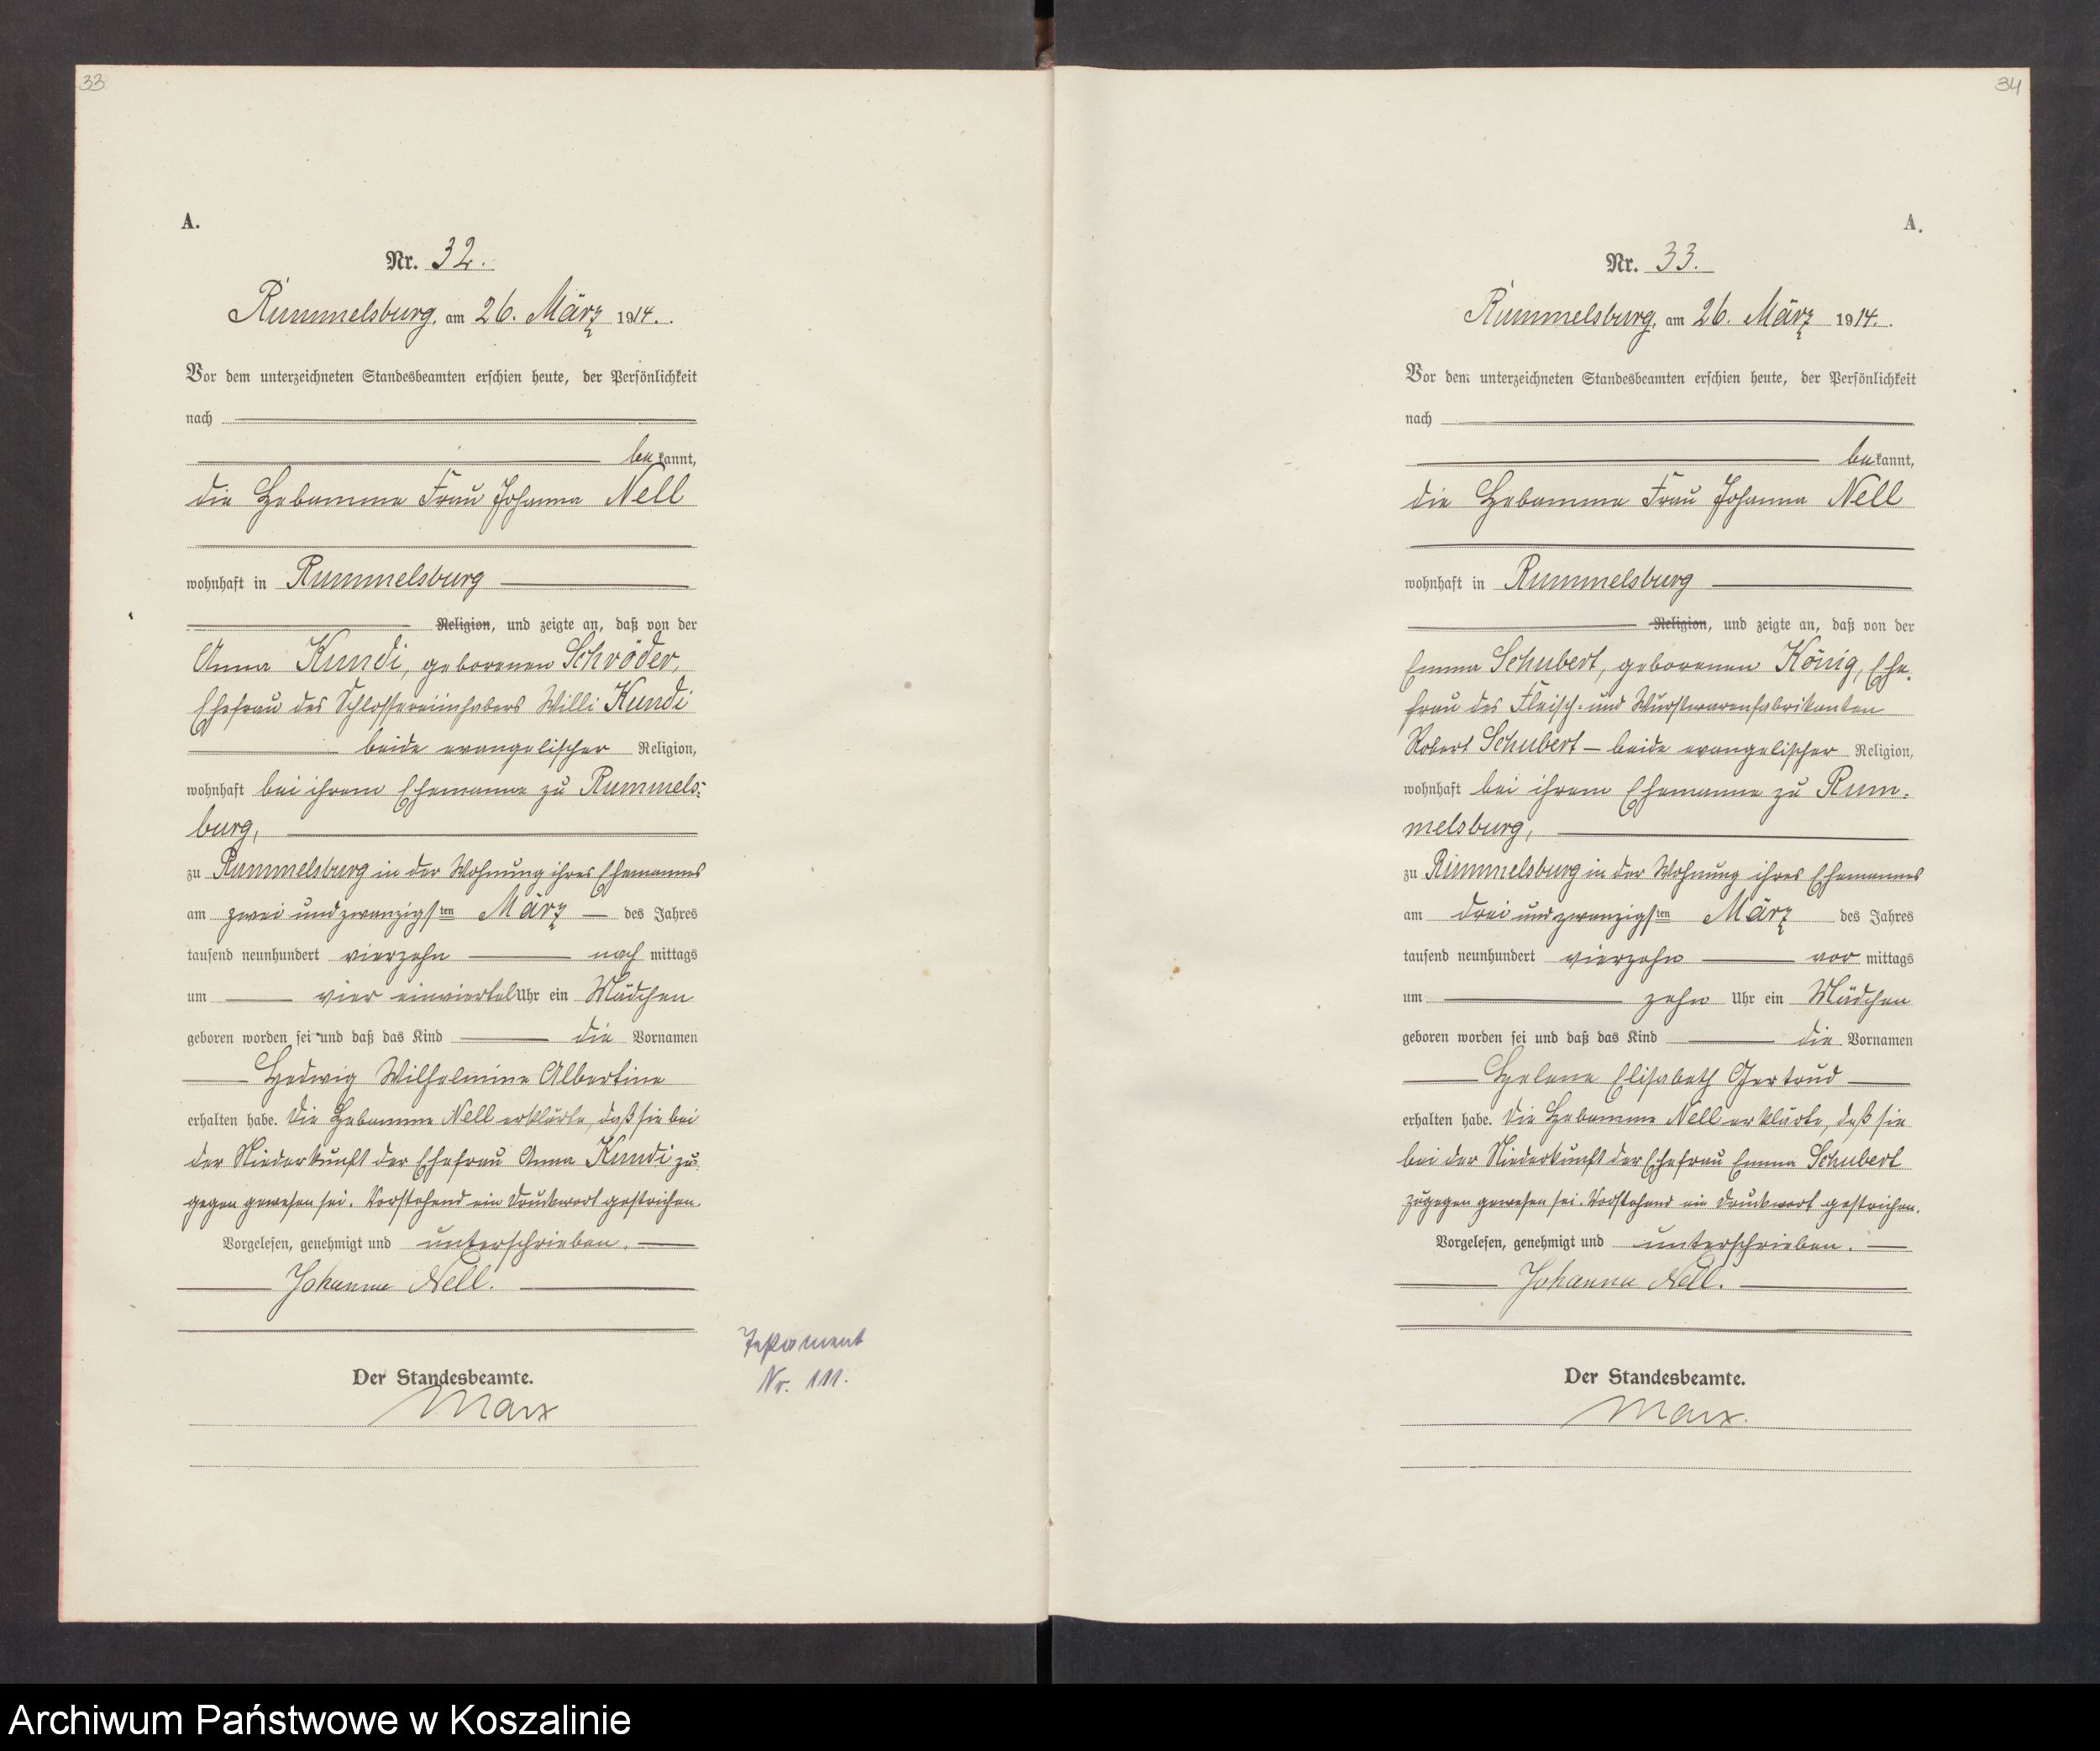 33
A.
Nr. 32.
Rummelsburg, am 26. März 1914.
Vor dem unterzeichneten Standesbeamten erschien heute, der Persönlichkeit
nach
bekannt,
die Hebamme Frau Johanna Nell
wohnhaft in Rummelsburg
Religion, und zeigte an, daß von der
Anna Kundi, geborenen Schröder,
Ehefrau des Schlossereiinhabers Willi Kundi
beide evangelischer Religion,
wohnhaft bei ihrem Ehemanne zu Rummels-
burg,
zu Rummelsburg in der Wohnung ihres Ehemannes
am zwei und zwanzigsten März des Jahres
tausend neunhundert vierzehn nach mittags
um vier einviertel Uhr ein Mädchen
geboren worden sei und daß das Kind die Vornamen
Hedwig Wilhelmine Albertine
erhalten habe. Die Hebamme Nell erklärte, daß sie bei
der Niederkunft der Ehefrau Anna Kundi zu-
gegen gewesen sei. Vorstehend ein Druckwort gestrichen.
Vorgelesen, genehmigt und unterschrieben.
Johanna Nell.
Der Standesbeamte.
Marx
Testament
Nr. 111.
34
A.
Nr. 33.
Rummelsburg, am 26. März 1914.
Vor dem unterzeichneten Standesbeamten erschien heute, der Persönlichkeit
nach
bekannt,
die Hebamme Frau Johanna Nell
wohnhaft in Rummelsburg
Religion, und zeigte an, daß von der
Emma Schubert, geborenen König, Ehe-
frau des Fleisch- und Wurstwarenfabrikanten
Robert Schubert – beide evangelischer Religion,
wohnhaft bei ihrem Ehemanne zu Rum-
melsburg,
zu Rummelsburg in der Wohnung ihres Ehemannes
am drei und zwanzigsten März des Jahres
tausend neunhundert vierzehn vor mittags
um zehn Uhr ein Mädchen
geboren worden sei und daß das Kind die Vornamen
Helene Elisabeth Gertrud
erhalten habe. Die Hebamme Nell erklärte, daß sie
bei der Niederkunft der Ehefrau Emma Schubert
zugegen gewesen sei. Vorstehend ein Druckwort gestrichen.
Vorgelesen, genehmigt und unterschrieben.
Johanna Nell.
Der Standesbeamte.
Marx.
Archiwum Państwowe w Koszalinie